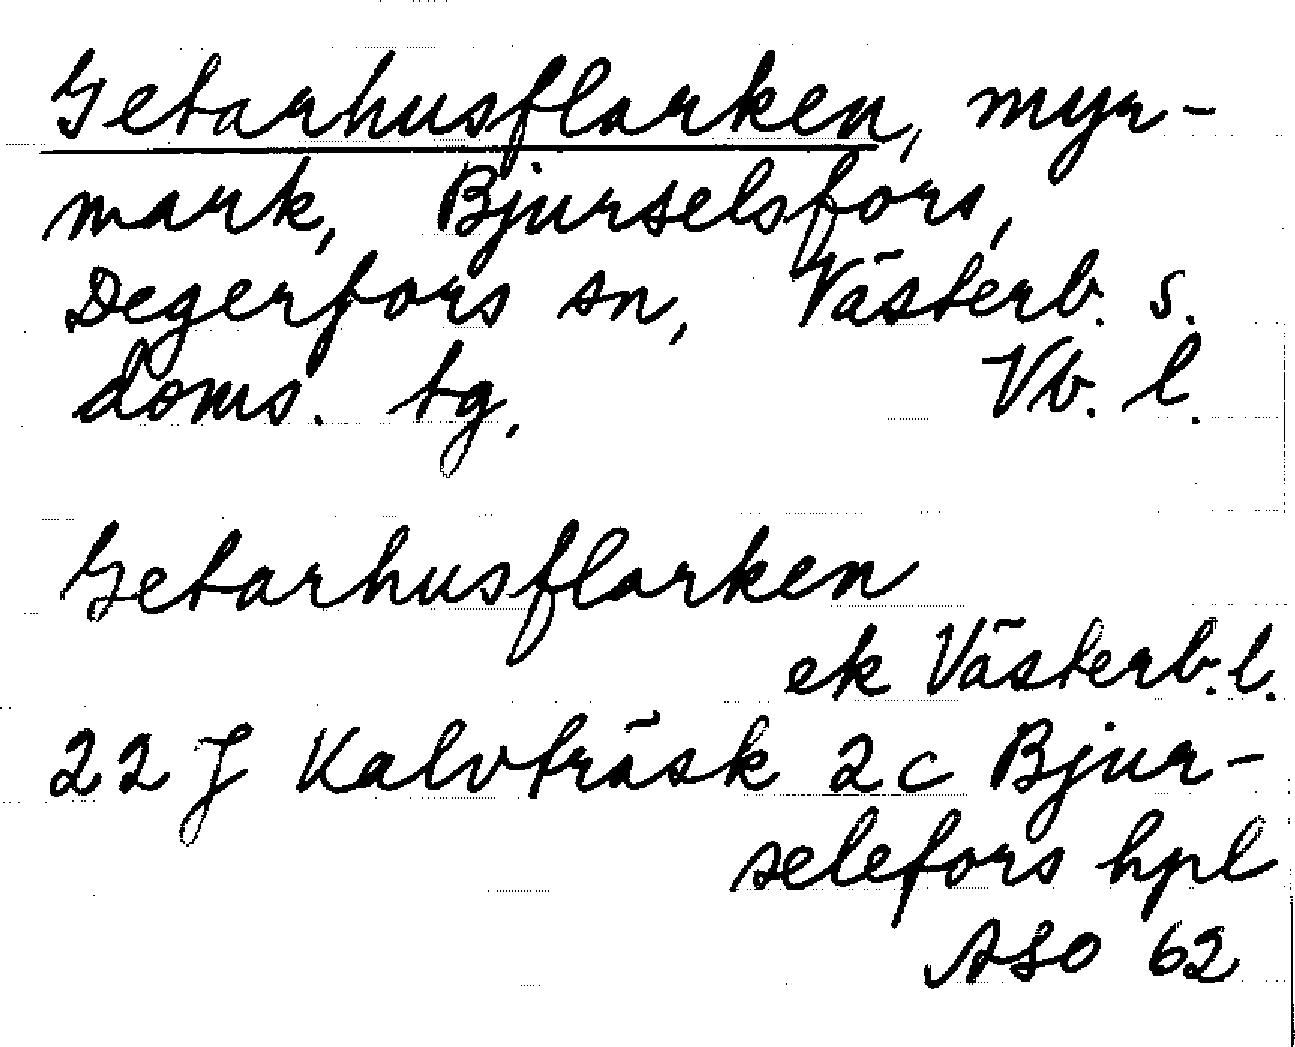 Getarhusflarken, myr-
mark, Bjurselsfors,
Degerfors sn, Västerb. s.
doms. tg. Vb. l.
Getarhusflarken
ek Västerb. l.
22 J Kalvträsk 2c Bjur-
selefors hpl
ASO 62